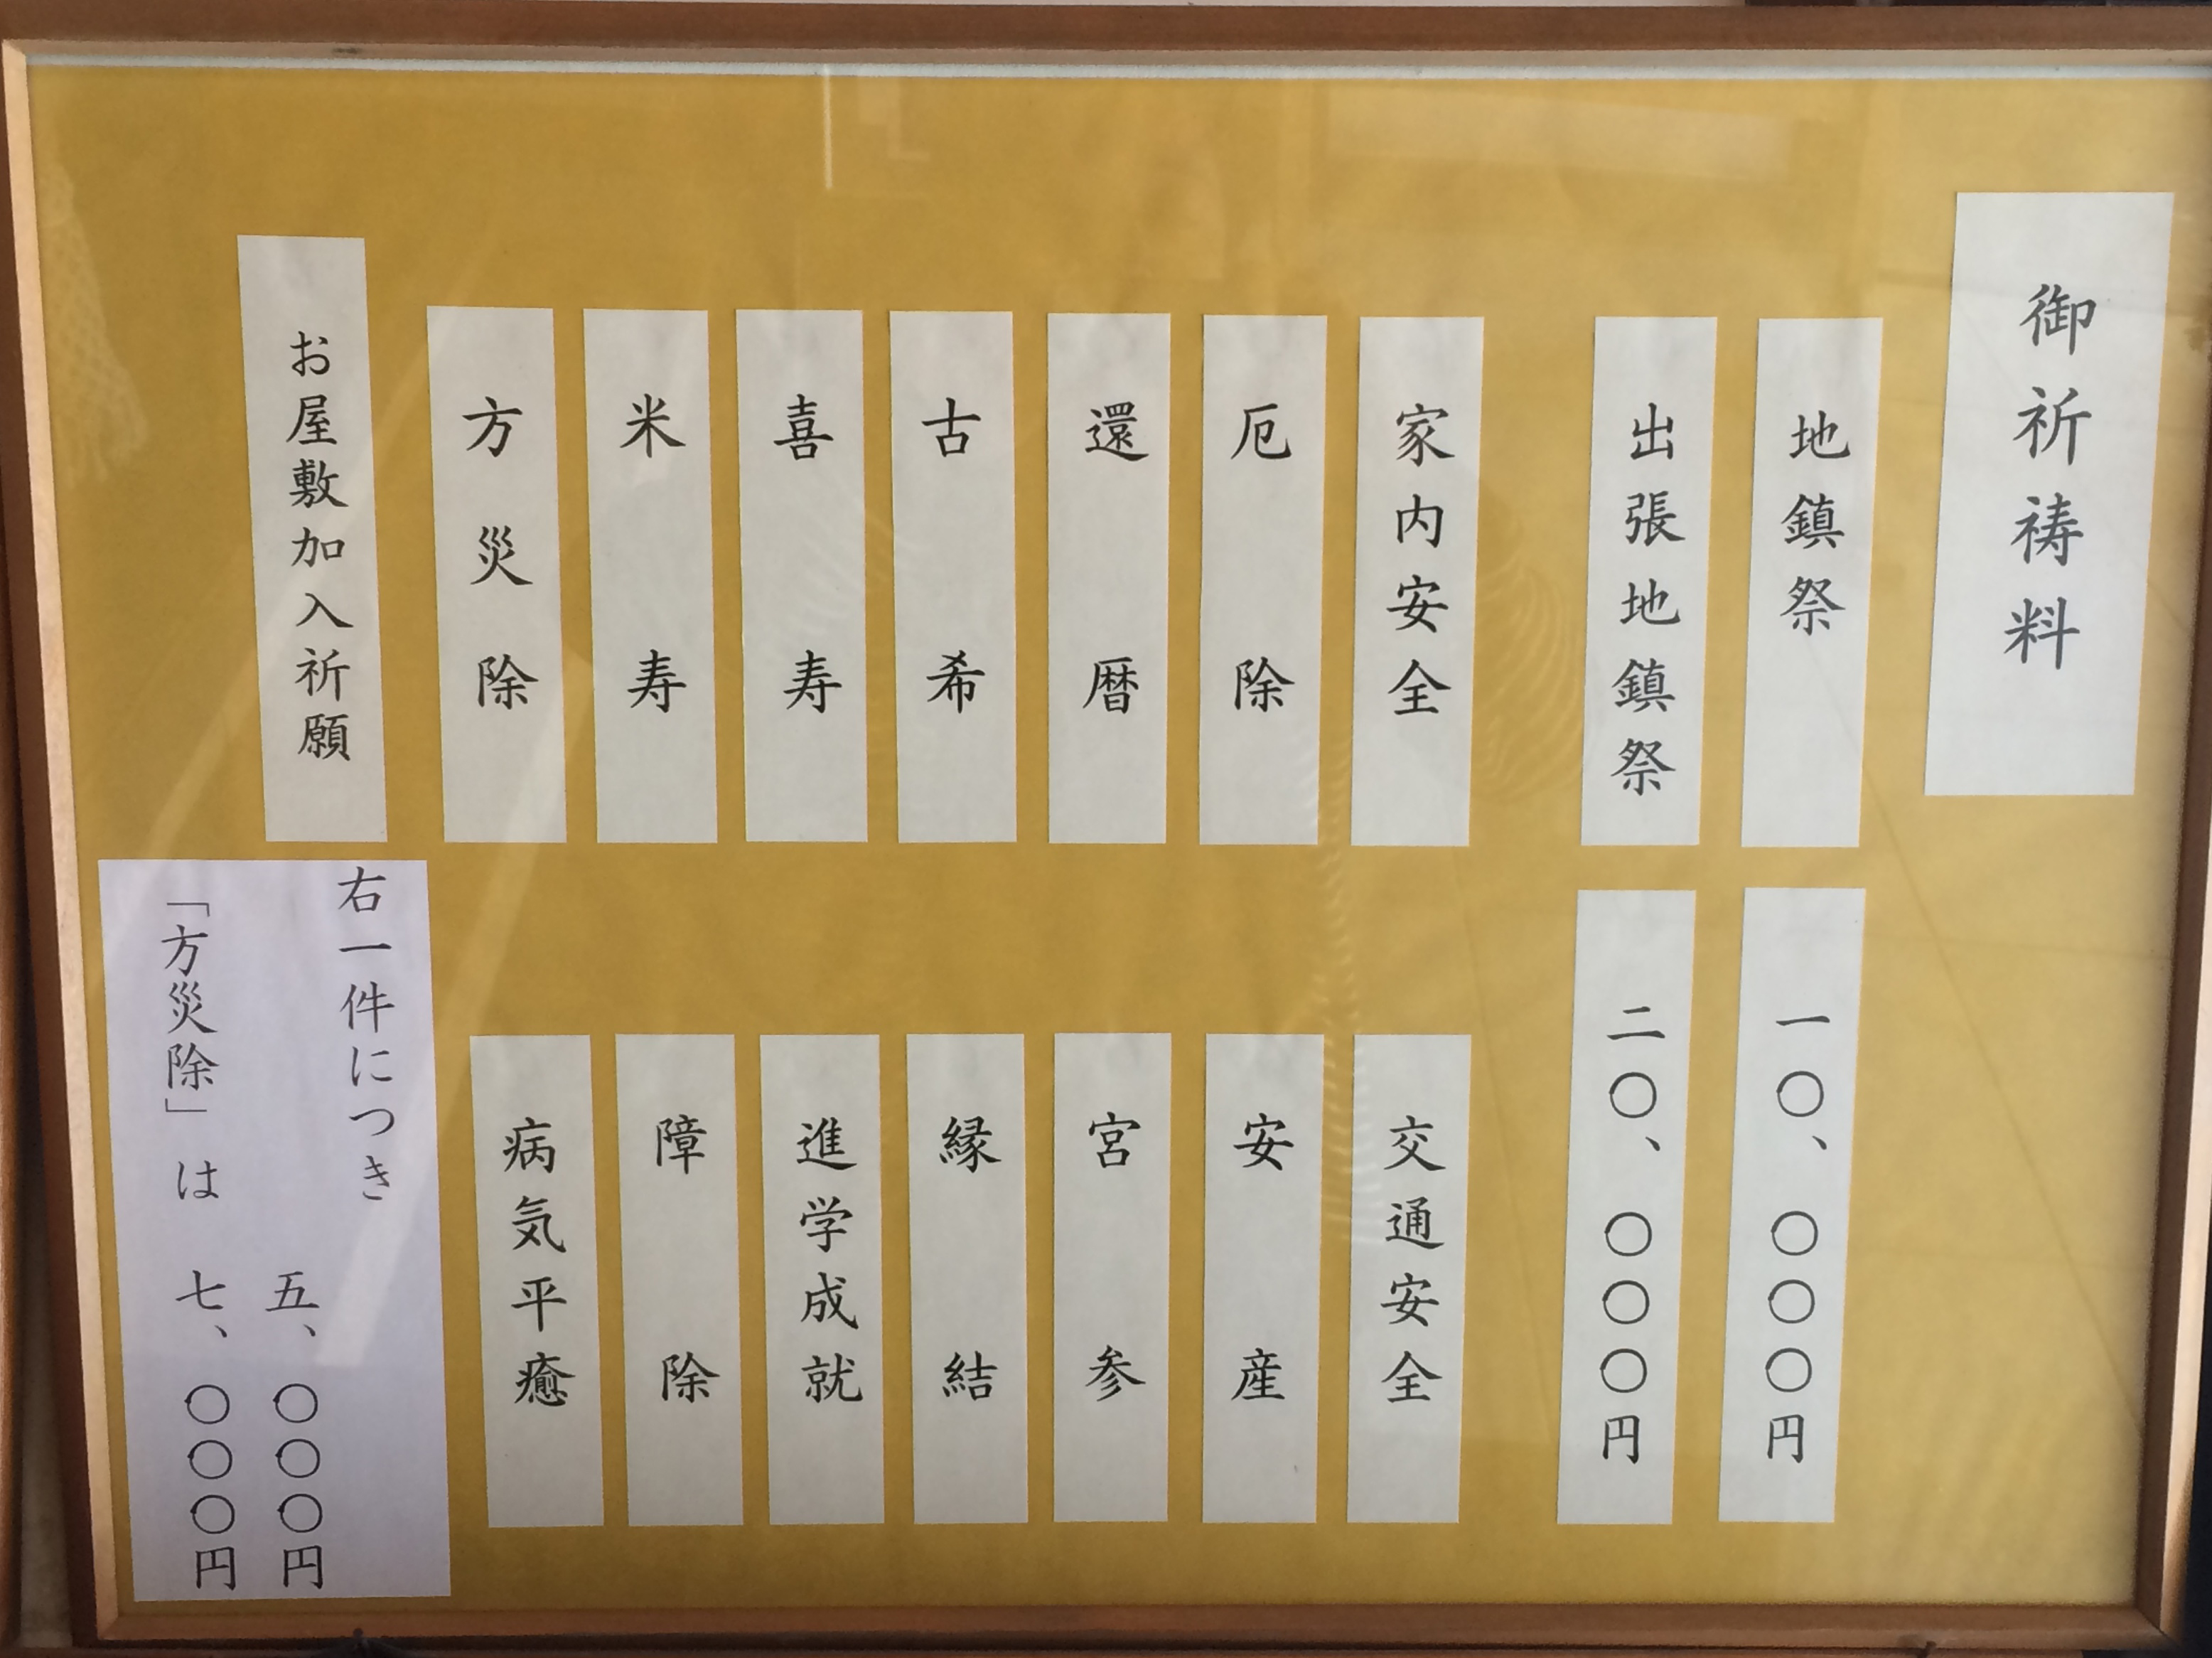 御祈祷料
地鎮祭
一〇、〇〇〇円
出張地鎮祭
二〇、〇〇〇円
家内安全
厄除
還暦
古希
喜寿
米寿
方災除
お屋敷加入祈願
交通安全
安産
宮参
縁結
進学成就
障除
病気平癒
右一件につき
五、〇〇〇円
「方災除」は 七、〇〇〇円